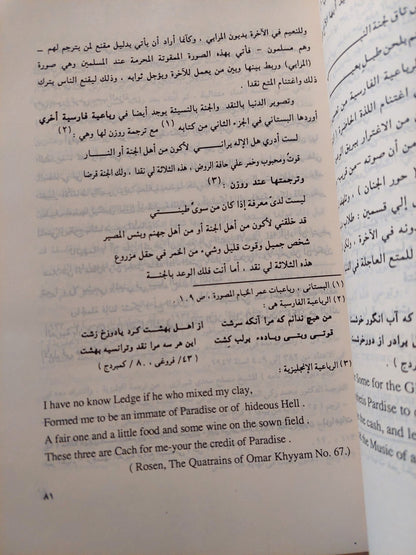 وللنعيم في الآخرة بديون المرابي ، وكأنما أراد أن يأتي بدليل مقنع لمن يترجم لهم –
وهم مسلمون – فأتي بهذه الصورة الممقوتة المحرمة عند المسلمين وهي صورة
(المرابي) وربط بينها وبين من يعمل للآخرة ويؤجل ثوابه . وذلك ليقنع الناس بترك
ذلك واغتنام المتع نقدا .
وتصوير الدنيا بالنقد والجنة بالنسيئة يوجد أيضا في رباعية فارسية أخري
أوردها البستاني في الجزء الثاني من كتابه (١) مع ترجمة روزن لها وهي : (٢)
لست أدري هل الإله براني لأكون من أهل الجنة أو النار
قوت ومحبوب وخمر علي حافة الروض ، هذه الثلاثة لي نقدا ، ولك الجنة قرضا
وترجمتها عند روزن : (٣)
ليست لدي معرفة إذا كان من سوي طينتي
قد خلقني لأكون من أهل الجنة أو من أهل جهنم وبئس المصير
شخص جميل وقوت قليل وشيء من الخمر في حقل مزروع
هذه الثلاثة لي نقد ، أما أنت فلك الوعد بالجنة
(١) البستاني ، رباعيات عمر الخيام المصورة . ص ١٠٩
(٢) الرباعية الفارسية هي :
من هيچ ندانم که مرا آنکه سرشت از اهل بهشت کرد یادوزخ زشت
قوتی وبتی وباده بر لب کشت این هر سه مرا نقد وترانسیه بهشت
(٤٣ / فروغي ، ٨٠ / كمبردج )
(٣) الرباعية الإنجليزية :
I have no know Ledge if he who mixed my clay,
Formed me to be an immate of Paradise or of hideous Hell .
A fair one and a little food and some wine on the sown field .
These three are Cach for me-your the credit of Paradise .
( Rosen, The Quatrains of Omar Khyyam No. 67.)
٨١